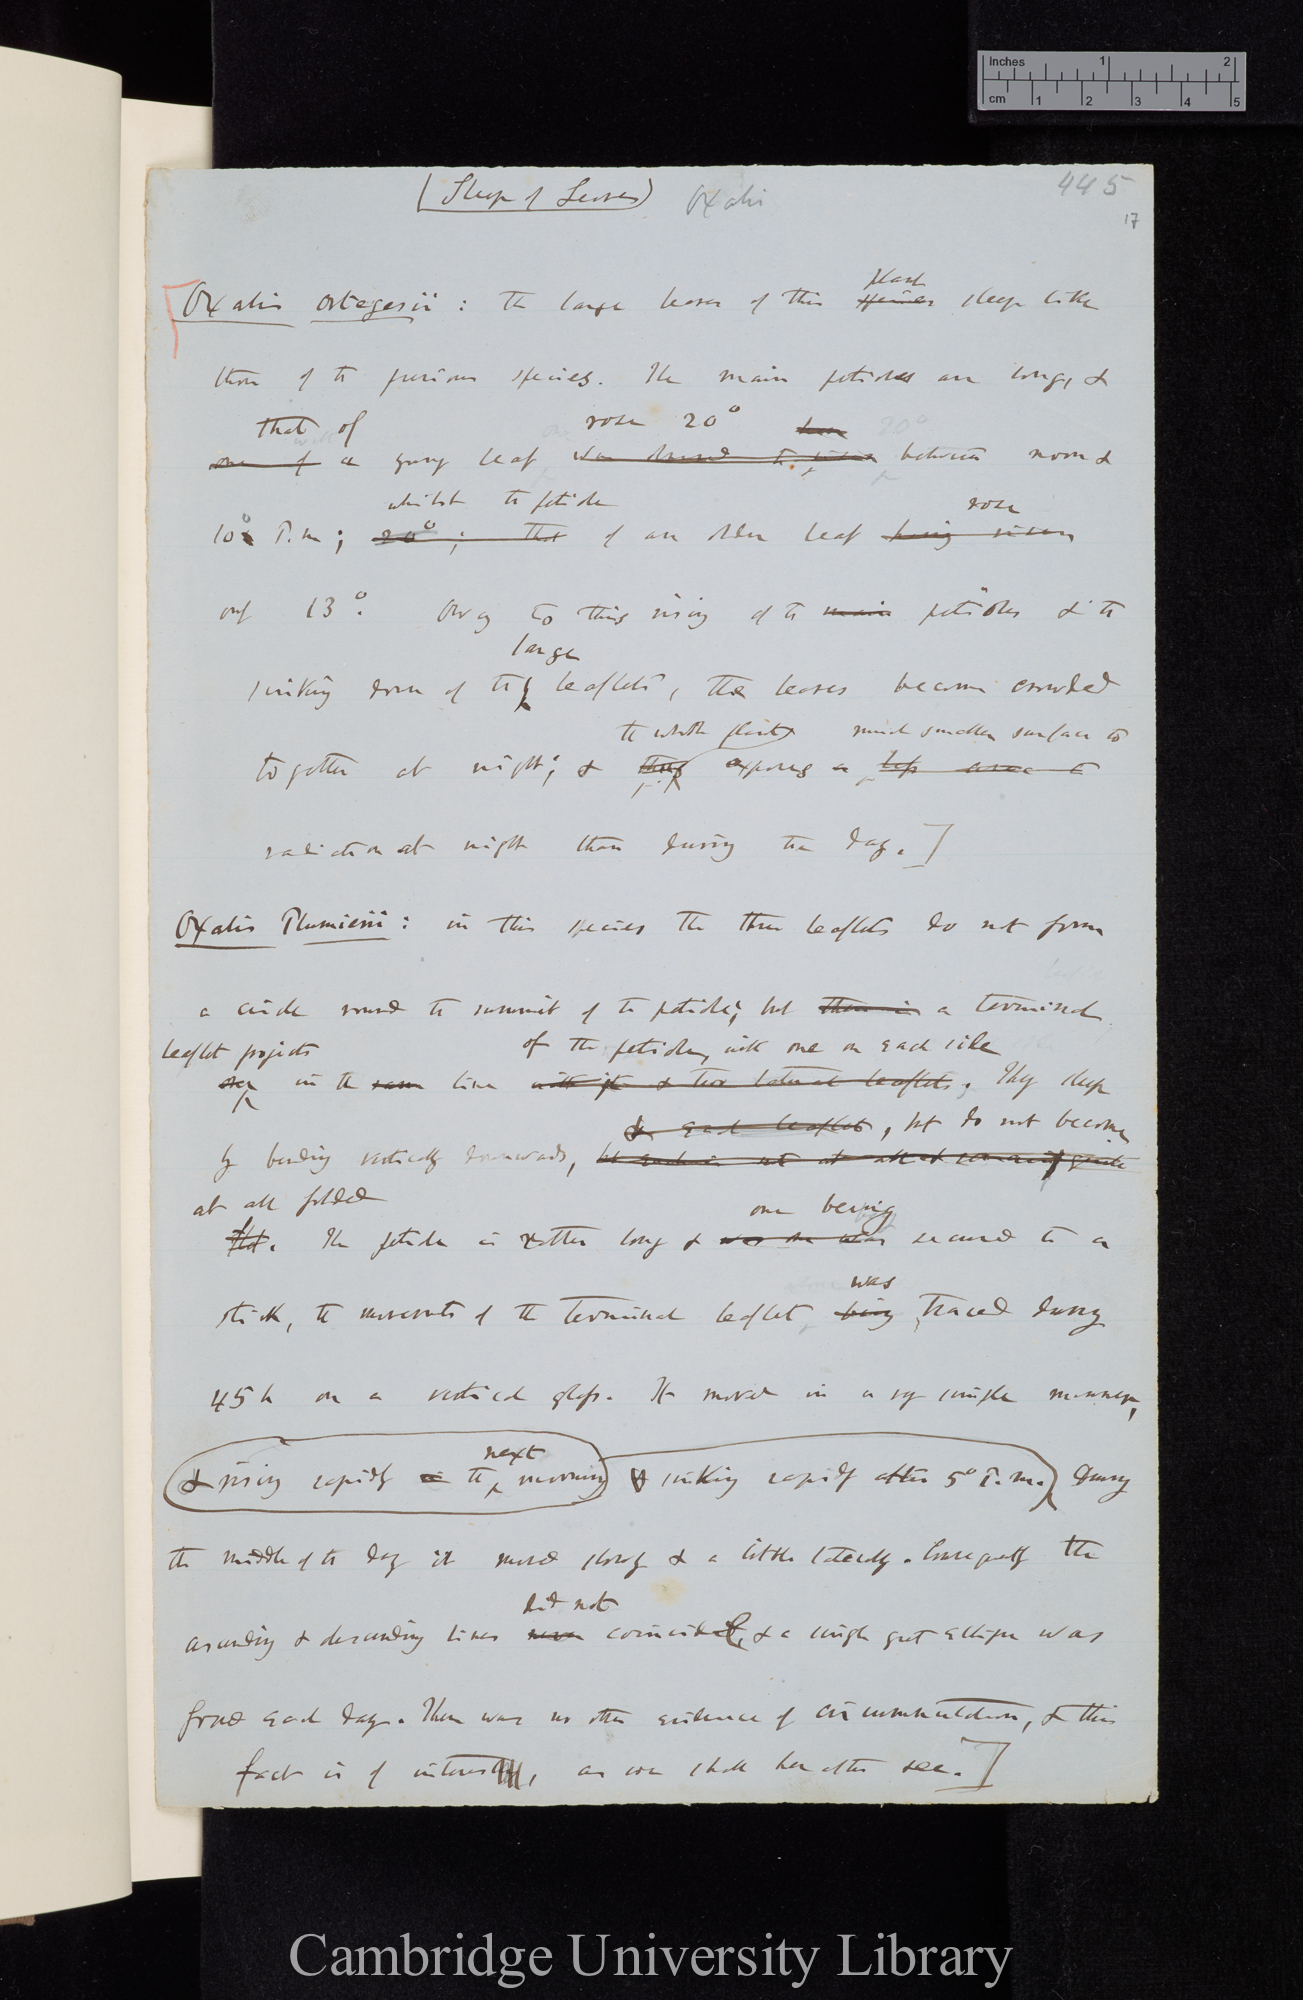 Inches 1 2
cm 1 2 3 4 5
(Sleep of Leaves) Oxalis 445
17
plant
Oxalis Ortegesii: the large leaves of this species sleep like
those of the previous species. The main petioles are long, &
that of rose 20°
one of a young leaf was observed to between noon &
whilst the petiole rose
10° P.m; 20°; that of an older leaf having risen
only 13°. Owing to this rising of the main petioles & the
large
sinking down of the leaflets, the leaves become crowded
the whole plant much smaller surface to
together at night; & thus exposes a less area to
radiation at night than during the day.]
Oxalis Plumierii: in this species the three leaflets do not form
a circle round the summit of the petiole; but there is a terminal
leaflet projects of the petiole, with one on each side
in the same line with it & two lateral leaflets. They sleep
& each leaflet, but do not become
by bending vertically downwards, but each is not at all
at all folded
one being
flat. The petiole is rather long & secured to a
was
stick, the movements of the terminal leaflet being traced during
45 h on a vertical glass. It moved in a very simple manner,
next
& rising rapidly in the morning & sinking rapidly after 5° P.m. During
the middle of the day it moved slowly & a little laterally. Consequently the
did not
ascending & descending lines never coincided, & a single great ellipse was
formed each day. There was no other evidence of circumnutation, & this
fact is of interest, as we shall hereafter see.]
Cambridge University Library